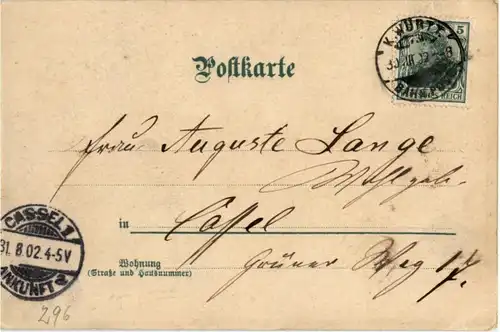 5
K. WÜRTT.
BAHNP.
REICH
Postkarte
Frau Auguste Lange
Wohlgeb.
in Cassel
CASSEL 1
31. 8. 02. 4-5V
ANKUNFT
Wohnung
(Straße und Hausnummer)
Grüner Weg 17.
296